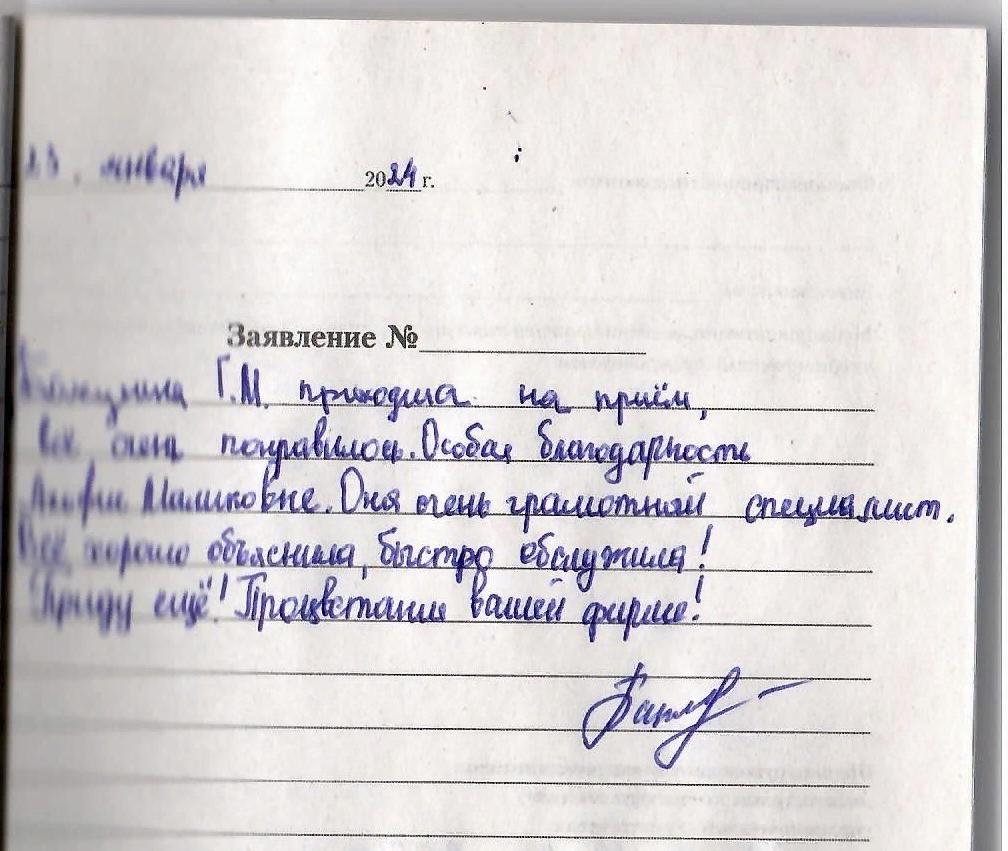 23. января 2024 г.
Заявление №
Г.М. приходила на приём,
всё очень понравилось. Особая благодарность
Маликовне. Она очень грамотный специалист.
Всё хорошо объяснила, быстро обслужила!
Приду ещё! Процветания вашей фирме!